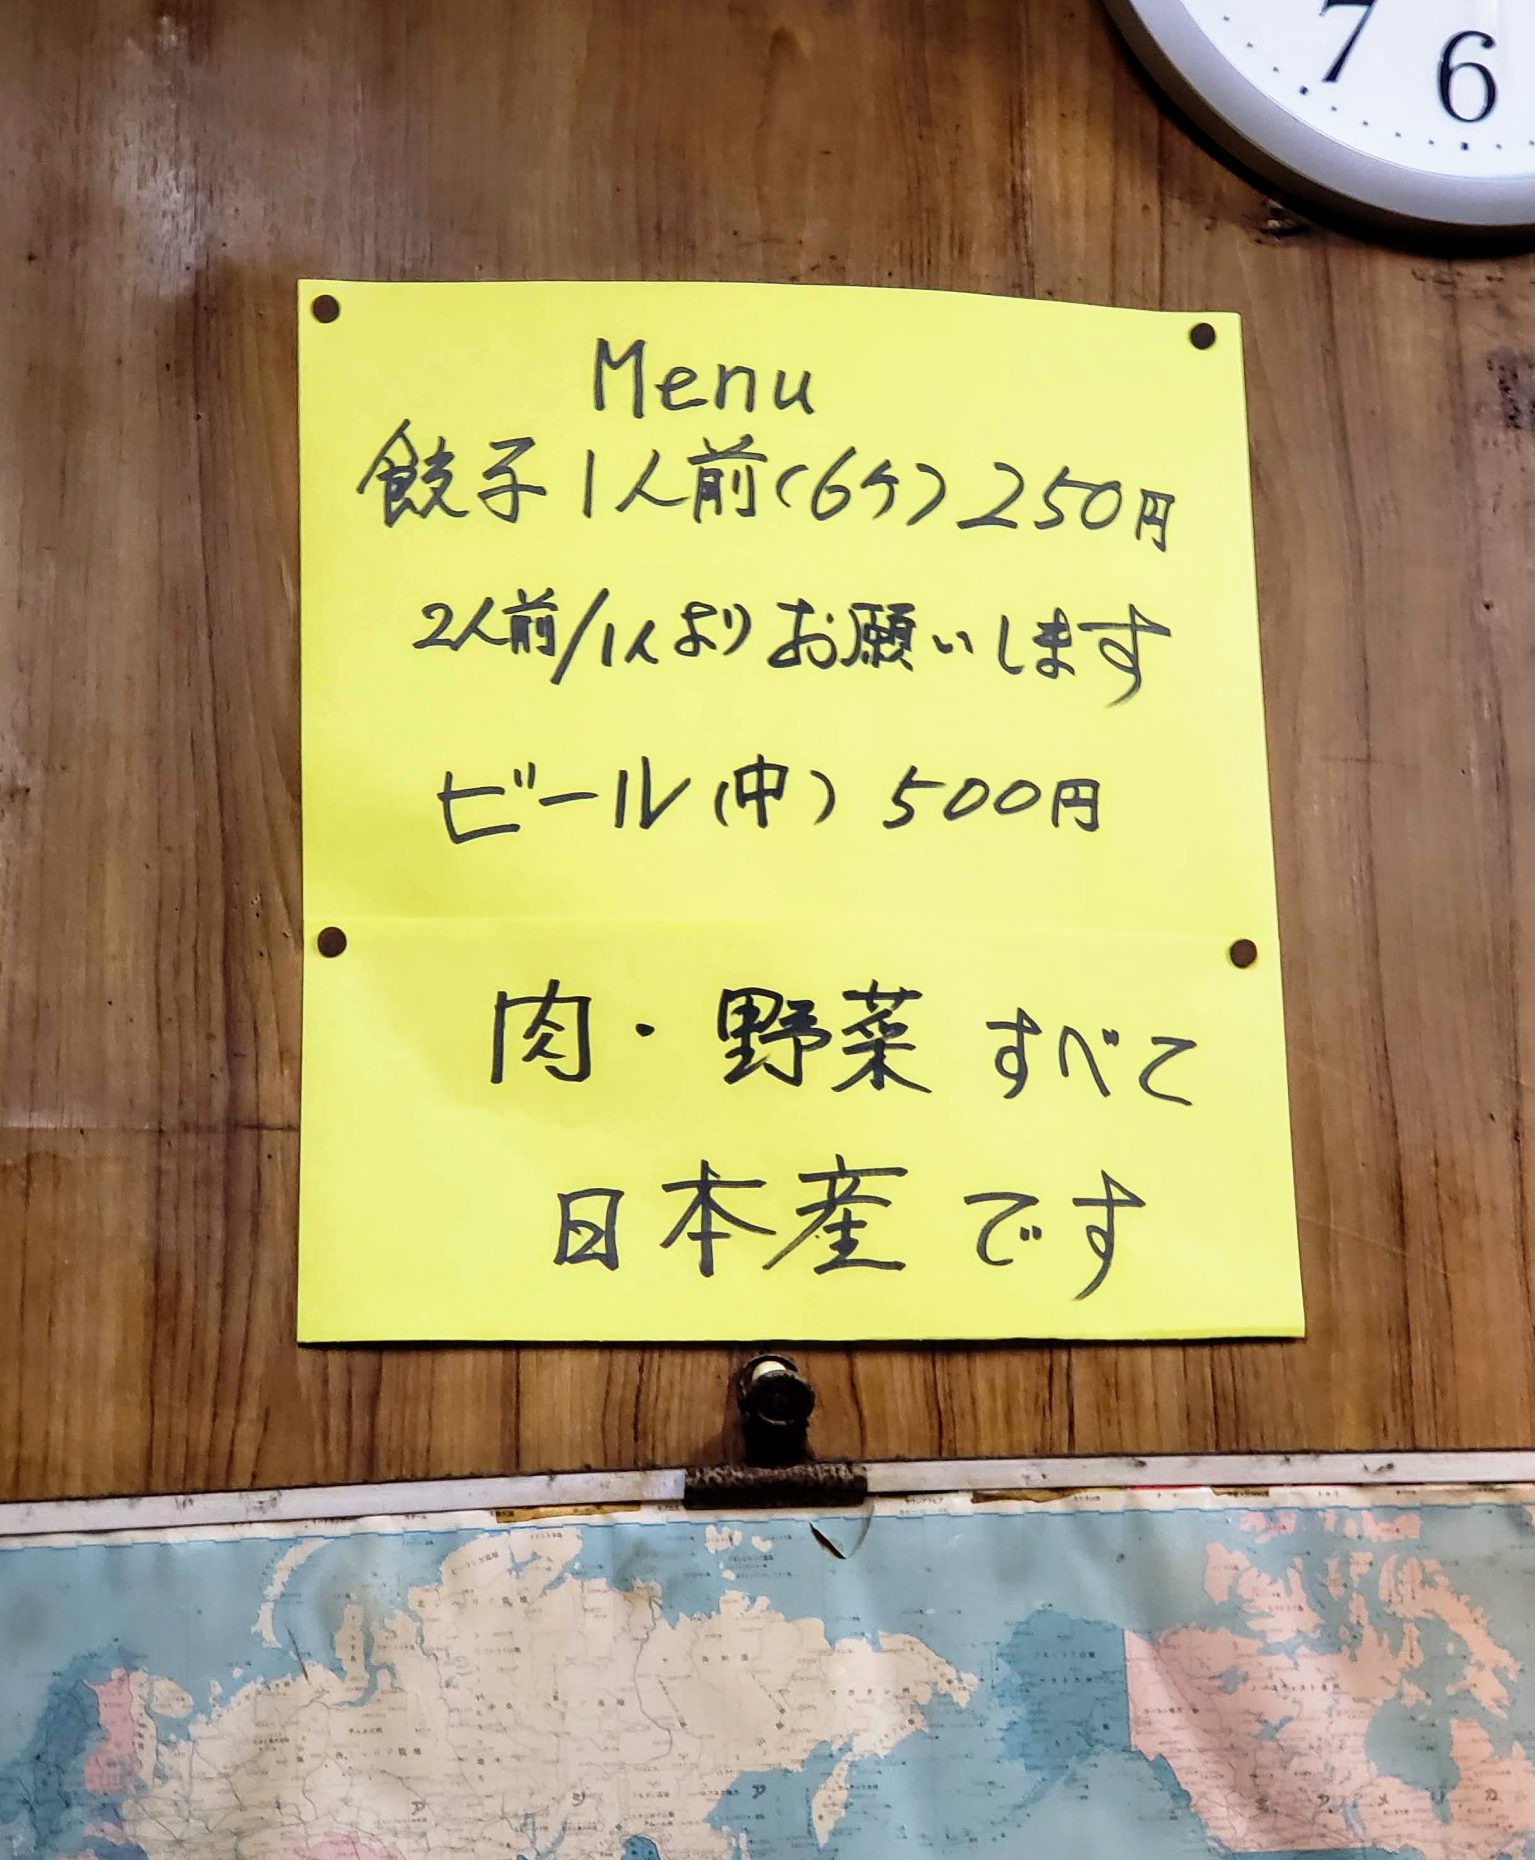 7 6
Menu
餃子 1人前(6ケ) 250円
2人前/1人より お願いします
ビール(中) 500円
肉・野菜 すべて
日本産 です